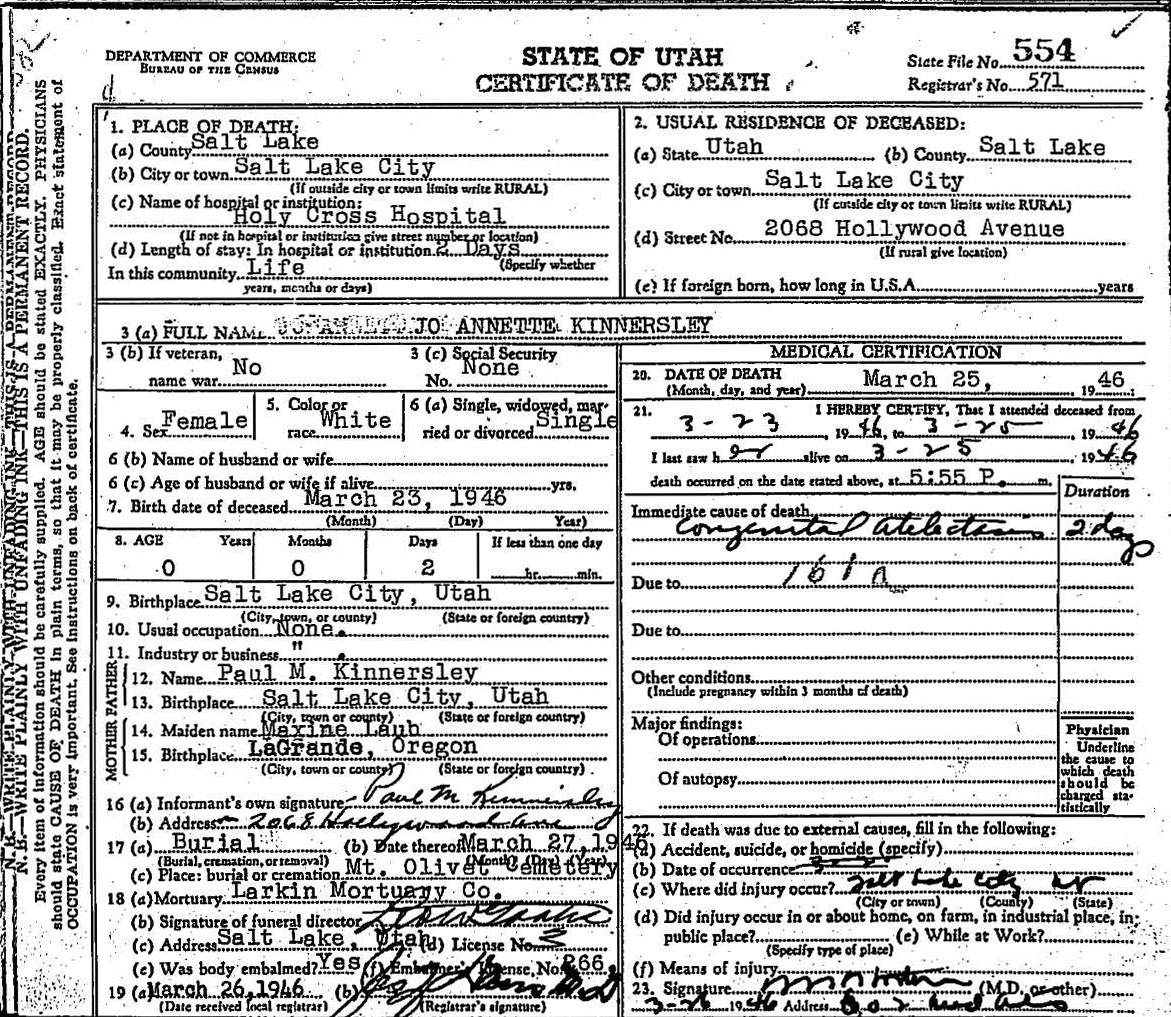 DEPARTMENT OF COMMERCE
BUREAU OF THE CENSUS
STATE OF UTAH
CERTIFICATE OF DEATH
State File No. 554
Registrar's No. 571
N.B.—WRITE PLAINLY WITH UNFADING INK—THIS IS A PERMANENT RECORD.
Every item of information should be carefully supplied. AGE should be stated EXACTLY. PHYSICIANS
should state CAUSE OF DEATH in plain terms, so that it may be properly classified. Exact statement of
OCCUPATION is very important. See instructions on back of certificate.
1. PLACE OF DEATH:
(a) County Salt Lake
(b) City or town Salt Lake City
(If outside city or town limits write RURAL)
(c) Name of hospital or institution:
Holy Cross Hospital
(If not in hospital or institution give street number or location)
(d) Length of stay: In hospital or institution 2 Days
(Specify whether
In this community Life
years, months or days)
2. USUAL RESIDENCE OF DECEASED:
(a) State Utah (b) County Salt Lake
(c) City or town Salt Lake City
(If outside city or town limits write RURAL)
(d) Street No. 2068 Hollywood Avenue
(If rural give location)
(e) If foreign born, how long in U.S.A. years
3 (a) FULL NAME JO ANNETTE KINNERSLEY
3 (b) If veteran, name war No
3 (c) Social Security No. None
4. Sex Female
5. Color or race White
6 (a) Single, widowed, married or divorced Single
6 (b) Name of husband or wife
6 (c) Age of husband or wife if alive yrs.
7. Birth date of deceased March 23, 1946
(Month) (Day) Year)
8. AGE Years Months Days If less than one day
0 0 2 hr. min.
9. Birthplace Salt Lake City, Utah
(City, town, or county) (State or foreign country)
10. Usual occupation None.
11. Industry or business " .
FATHER
12. Name Paul M. Kinnersley
13. Birthplace Salt Lake City, Utah
(City, town or county) (State or foreign country)
MOTHER
14. Maiden name Maxine Laub
15. Birthplace LaGrande, Oregon
(City, town or county) (State or foreign country)
16 (a) Informant's own signature Paul M Kinnersley
(b) Address 2068 Hollywood Ave
17 (a) Burial (b) Date thereof March 27, 1946
(Burial, cremation, or removal) (Month) (Day) (Year)
(c) Place: burial or cremation Mt. Olivet Cemetery
18 (a) Mortuary Larkin Mortuary Co.
(b) Signature of funeral director
(c) Address Salt Lake, Utah (d) License No. 3
(e) Was body embalmed? Yes (f) Embalmer's License, No. 266
19 (a) March 26, 1946 (b)
(Date received local registrar) (Registrar's signature)
MEDICAL CERTIFICATION
20. DATE OF DEATH
(Month, day, and year) March 25, 1946
21. I HEREBY CERTIFY, That I attended deceased from
3-23, 1946, to 3-25, 1946
I last saw her alive on 3-25, 1946
death occurred on the date stated above, at 5:55 P. m.
Duration
Immediate cause of death
Congenital Atelectasis 2 days
Due to 161a
Due to
Other conditions
(Include pregnancy within 3 months of death)
Major findings:
Of operations
Of autopsy
Physician
Underline
the cause to
which death
should be
charged sta-
tistically
22. If death was due to external causes, fill in the following:
(a) Accident, suicide, or homicide (specify)
(b) Date of occurrence
(c) Where did injury occur? Salt Lake City
(City or town) (County) (State)
(d) Did injury occur in or about home, on farm, in industrial place, in
public place? (e) While at Work?
(Specify type of place)
(f) Means of injury
23. Signature (M.D. or other)
3-26 1946 Address